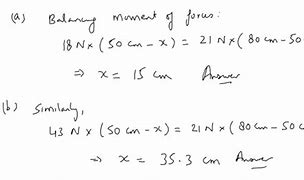 (a) Balancing moment of forces:
18 N x (50 cm - x) = 21 N x (80 cm - 50
⇒ x = 15 cm Answer
(b) Similarly,
43 N x (50 cm - x) = 21 N x (80 cm - 50c
⇒ x = 35.3 cm Answer